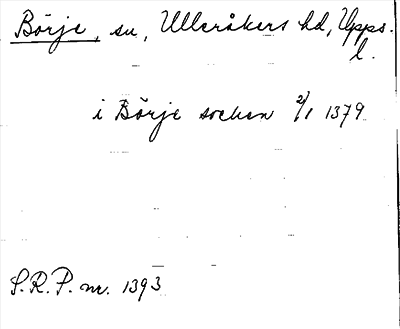 Börje, sn, Ulleråkers hd, Upps.
l.
i Börje socken 2/1 1379
S.R.P. nr. 1393